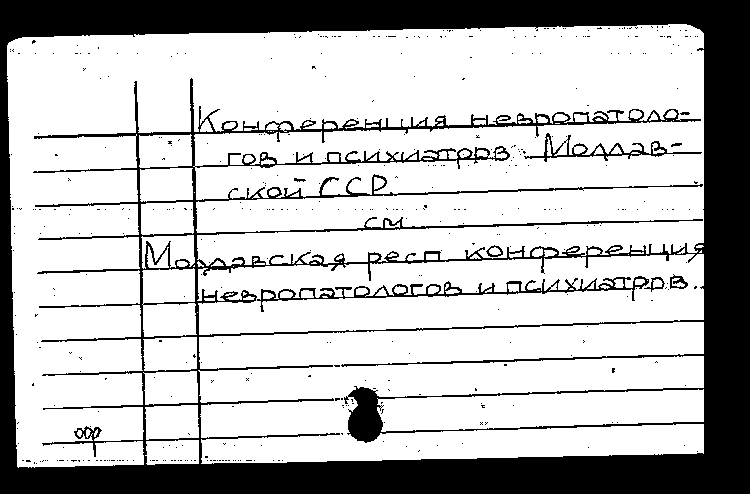 Конференция невропатоло-
гов и психиатров Молдав-
ской ССР.
см.
Молдавская респ. конференция
невропатологов и психиатров.